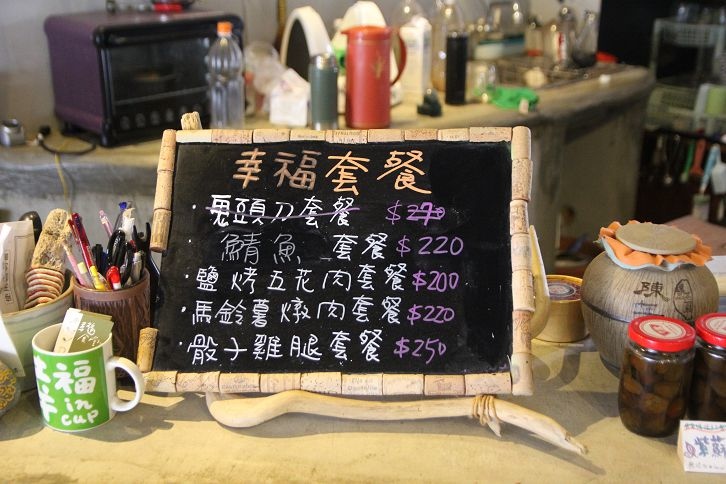 幸福套餐
·鬼頭刀套餐 $270
鯖魚 套餐 $220
·鹽烤五花肉套餐 $200
·馬鈴薯燉肉套餐 $220
·骰子雞腿套餐 $250
幸福
in
cup
陳
紫蘇